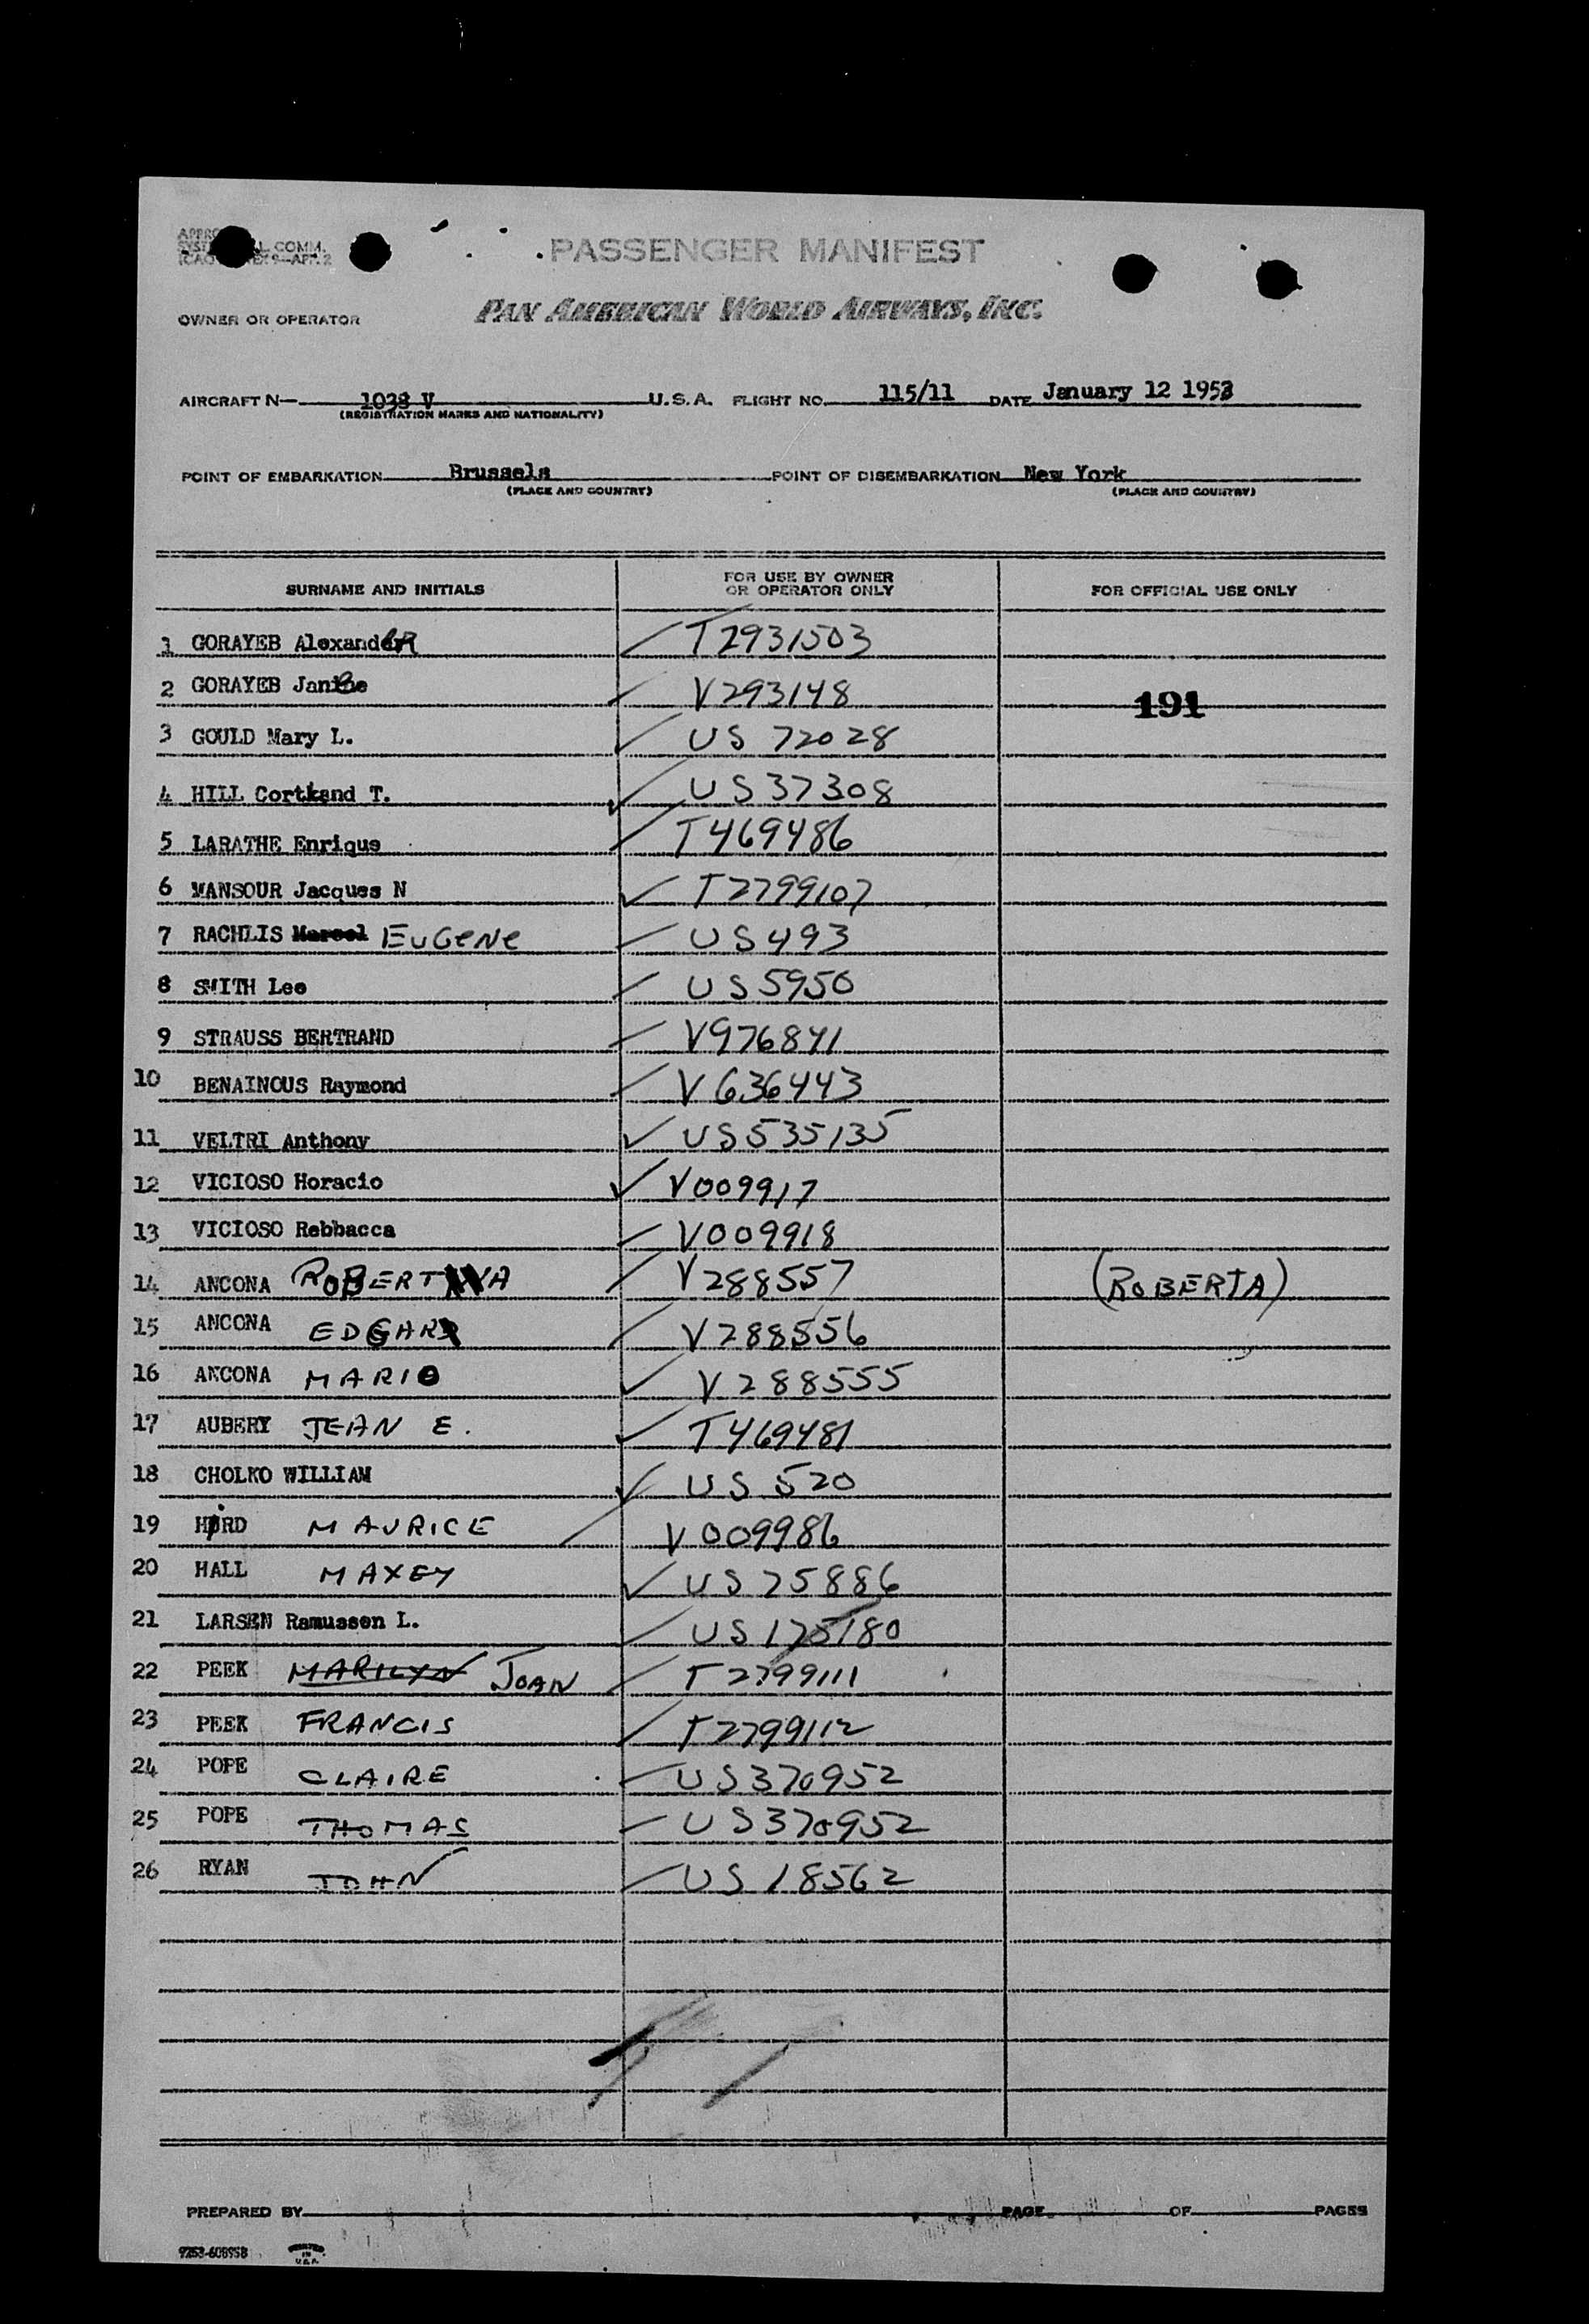 PASSENGER MANIFEST
PAN AMERICAN WORLD AIRWAYS, INC.
OWNER OR OPERATOR
AIRCRAFT N— 1038 V U.S.A. FLIGHT NO. 115/11 DATE January 12 1953
(REGISTRATION MARKS AND NATIONALITY)
POINT OF EMBARKATION Brussels POINT OF DISEMBARKATION New York
(PLACE AND COUNTRY) (PLACE AND COUNTRY)
SURNAME AND INITIALS FOR USE BY OWNER OR OPERATOR ONLY FOR OFFICIAL USE ONLY
1 GORAYEB Alexander T2931503
2 GORAYEB V293148 191
3 GOULD Mary L. US 72028
4 HILL Cortland T. US37308
5 LARATHE Enrique T469486
6 MANSOUR Jacques N T2799107
7 RACHLIS Marcel EUGENE US493
8 SMITH Lee US5950
9 STRAUSS BERTRAND V976841
10 BENAINOUS Raymond V636443
11 VELTRI Anthony US535135
12 VICIOSO Horacio V009917
13 VICIOSO Rebbacca V009918
14 ANCONA ROBERTA V288557 (ROBERTA)
15 ANCONA EDGAR V288556
16 ANCONA MARIO V288555
17 AUBERY JEAN E. T469481
18 CHOLKO WILLIAM US 520
19 HIRD MAURICE V009986
20 HALL MAXEY US25886
21 LARSEN Ramussen L. US175180
22 PEEK MARILYN JOAN T2799111
23 PEEK FRANCIS T2799112
24 POPE CLAIRE US370952
25 POPE THOMAS US370952
26 RYAN JOHN US18562
PREPARED BY PAGE OF PAGES
9253-608958 PRINTED IN U.S.A.